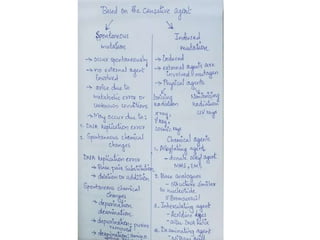 Based on the causative agent
Spontaneous
mutation
→ occur spontaneously
→ no external agent
involved
→ arise due to
metabolic error or
unknown conditions
→ May occur due to:
1. DNA Replication error
2. Spontaneous chemical
changes
DNA Replication error
→ Base pair substitution
→ deletion or addition
Spontaneous chemical
changes
→ depurination
deamination
→ depurination: purine
removed
→ deamination: amino
Induced
mutation
→ Induced
→ external agents are
involved → mutagen
→ Physical agents
Ionising
radiation
X ray,
γ ray,
cosmic rays
Nonionising
Radiation
UV rays
Chemical agents
1. Alkylating agent
→ donate alkyl agent
MMS, EMS
2. Base analogues
- structure similar
to nucleotide
5 Bromouracil
3. Intercalating agent
- Acridine dyes
→ into DNA helix
4. Deaminating agent